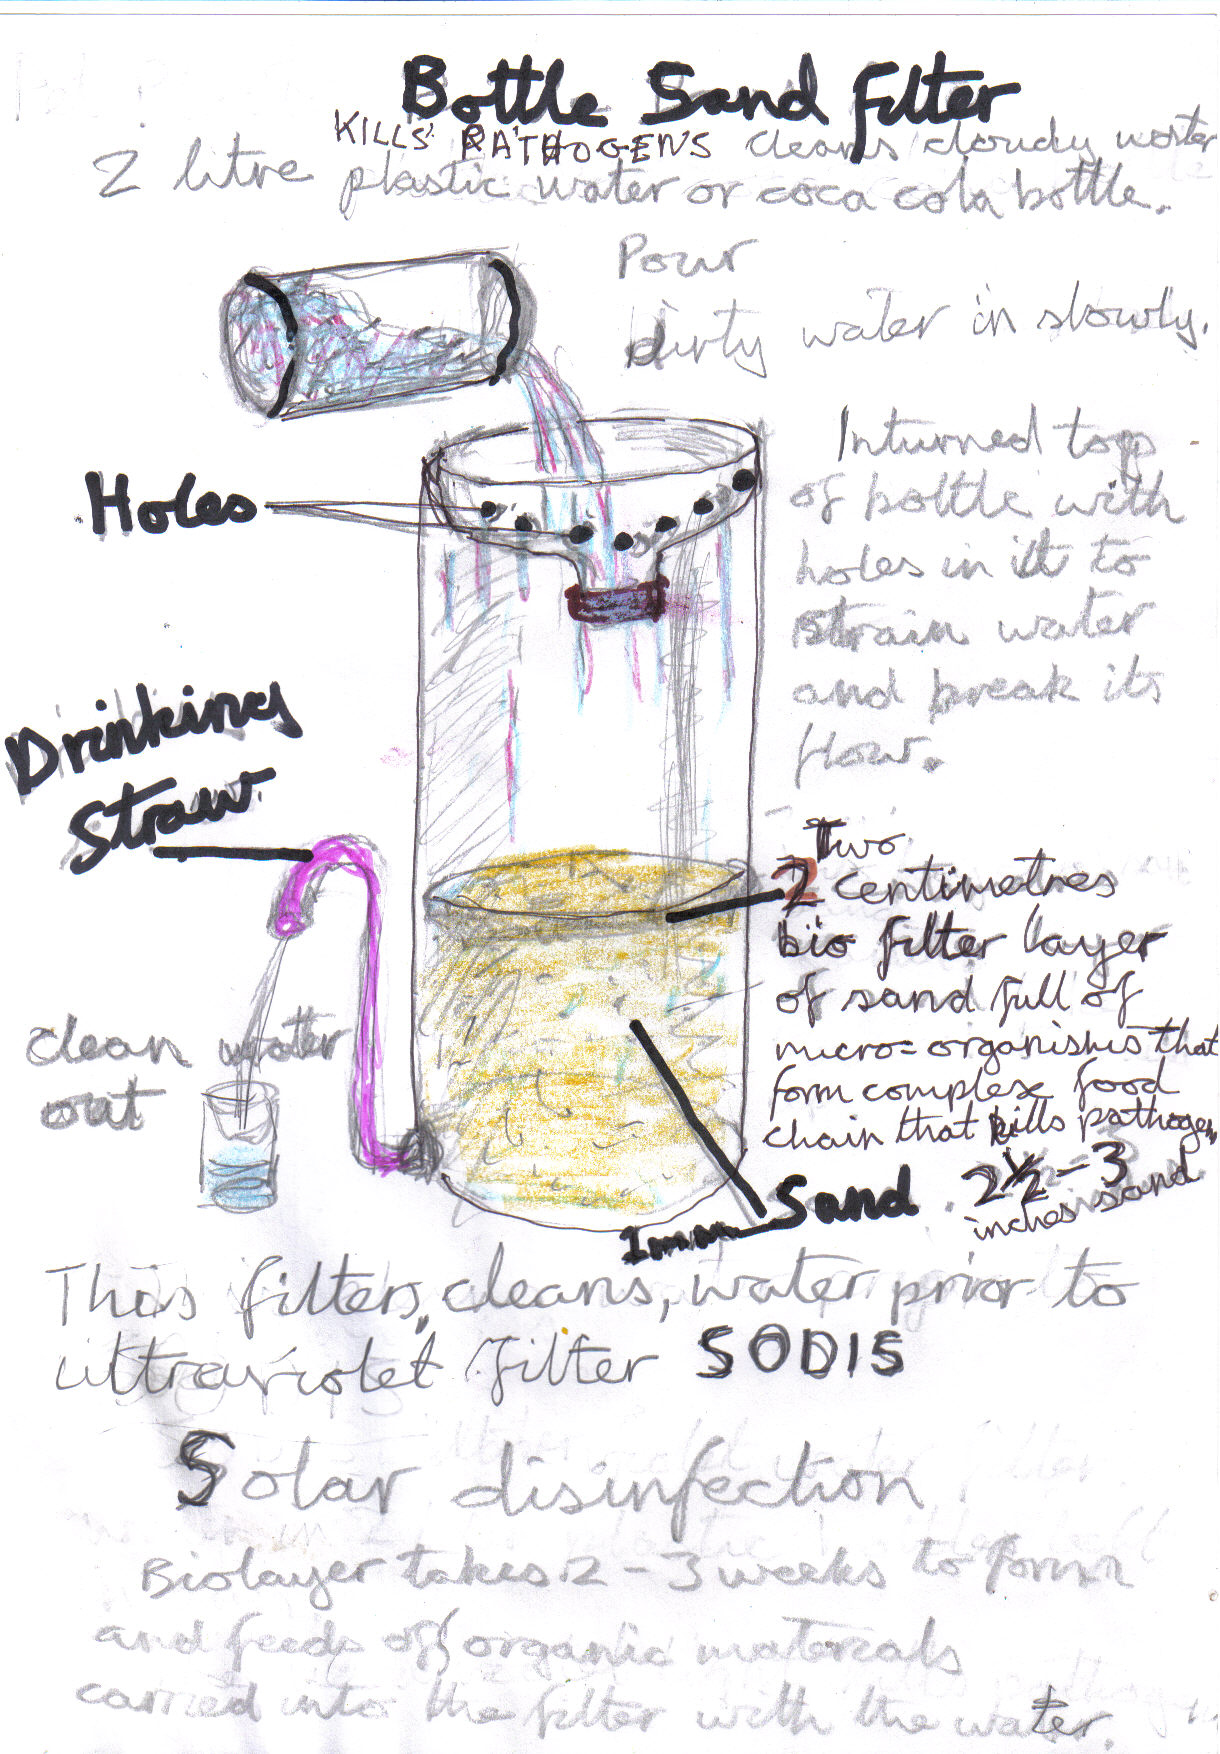 Bottle Sand Filter
KILLS PATHOGENS cleans cloudy water
2 litre plastic water or coca cola bottle.
Pour
dirty water in slowly.
Inturned top
of bottle with
holes in it to
strain water
and break its
flow.
Holes
Drinking
Straw
Two
2 centimetres
bio filter layer
of sand full of
micro-organisms that
form complex food
chain that kills pathogen
clean water
out
Sand 2½-3
inches sand
1mm
This filters, cleans, water prior to
ultraviolet filter SODIS
Solar disinfection
Biolayer takes 2-3 weeks to form
and feeds off organic materials
carried into the filter with the water.